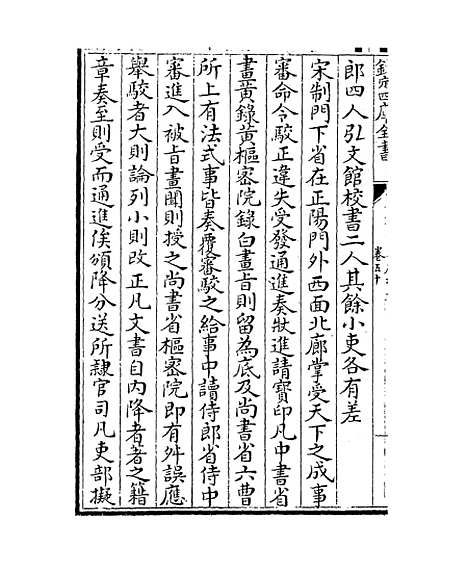 欽定四庫全書
卷五十
郎四人弘文館校書二人其餘小吏各有差
宋制門下省在正陽門外西面北廊掌受天下之成事
審命令駮正違失受發通進奏狀進請寶印凡中書省
畫黃錄黃樞密院錄白畫旨則留為底及尚書省六曹
所上有法式事皆奏覆審駮之給事中讀侍郎省侍中
審進入被旨畫聞則授之尚書省樞密院即有舛誤應
舉駮者大則論列小則改正凡文書自內降者著之籍
章奏至則受而通進俟頒降分送所隸官司凡吏部擬